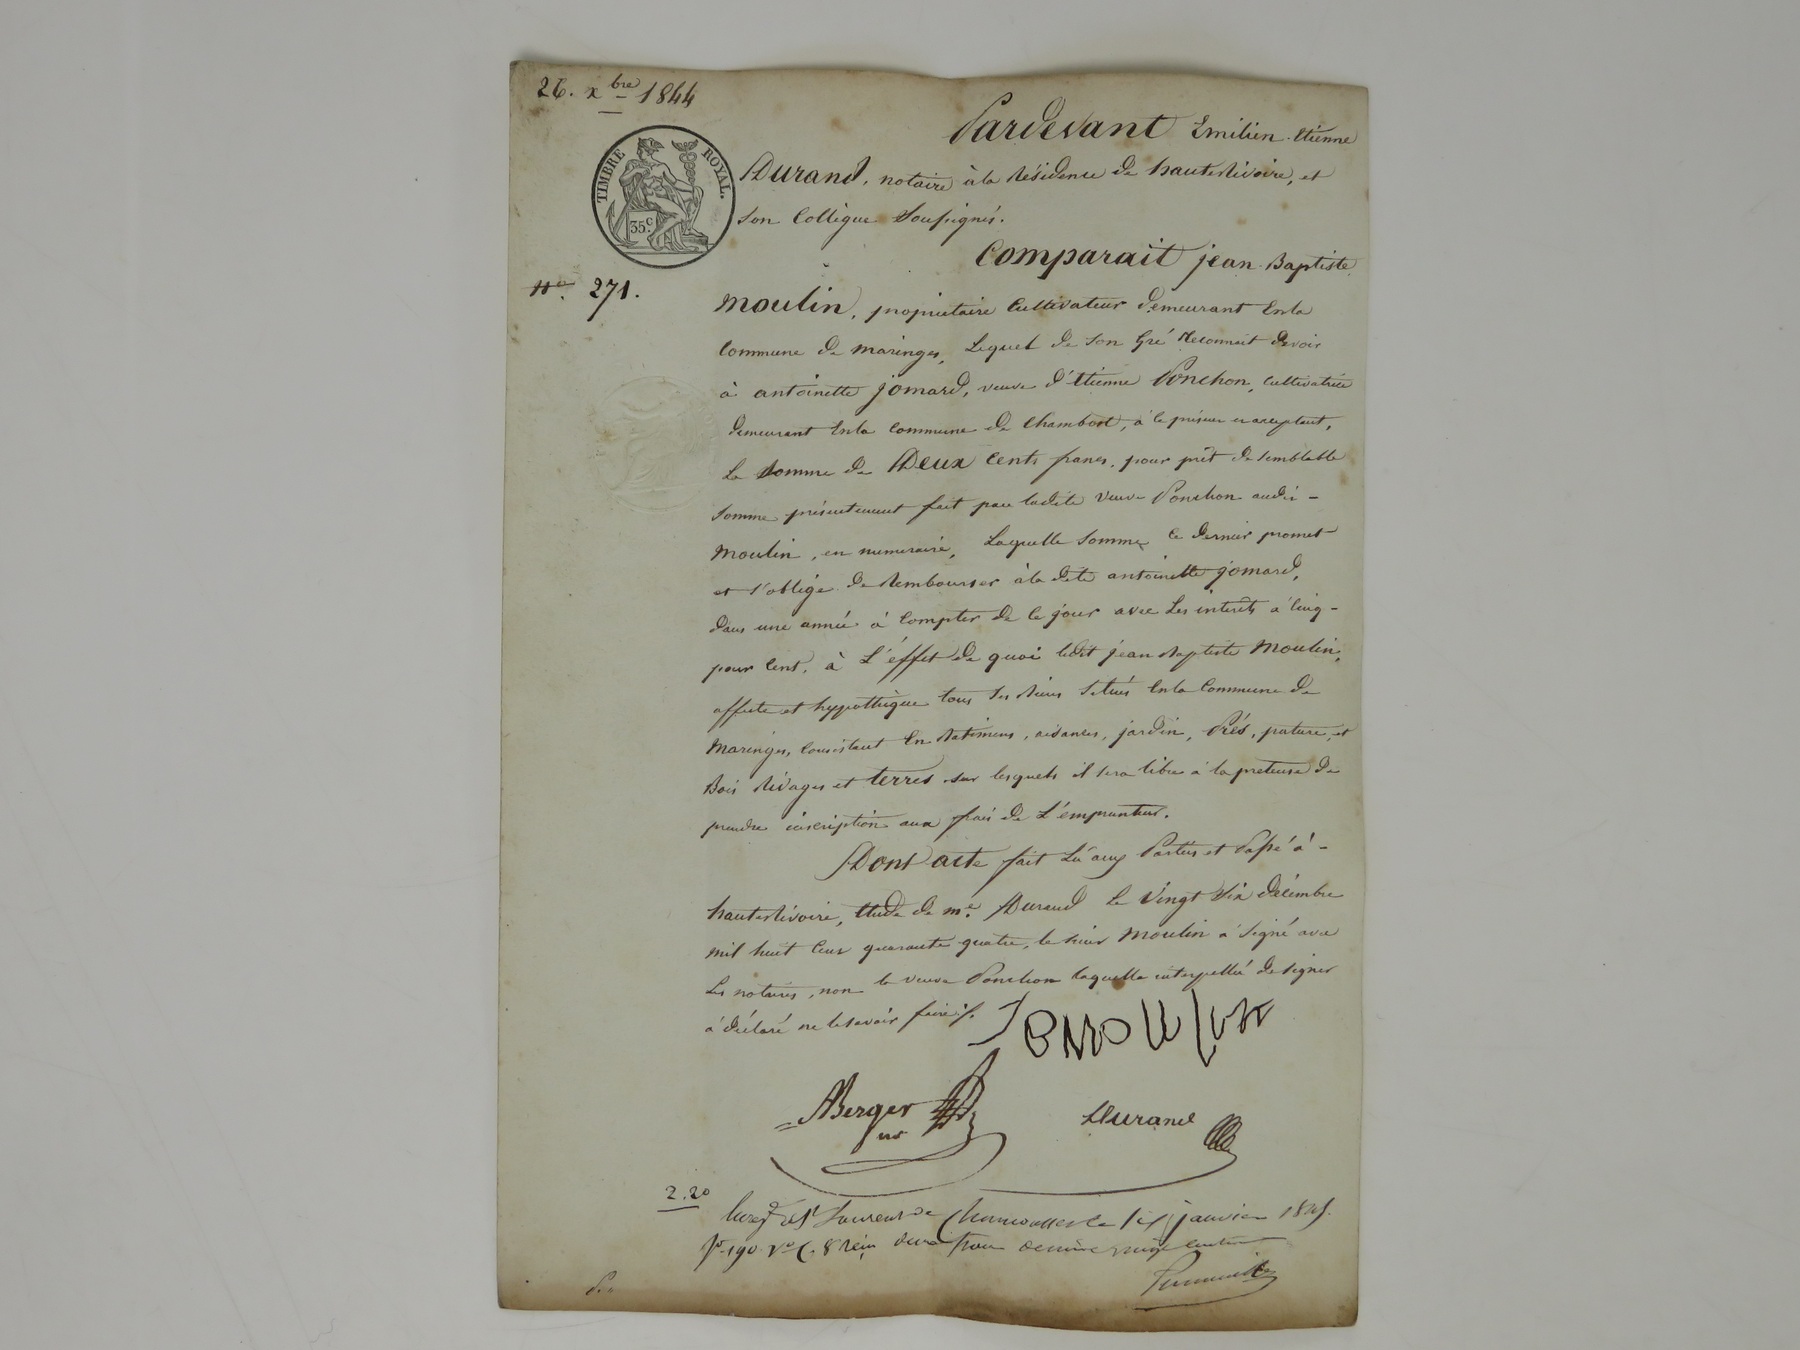 26. xbre 1844
TIMBRE ROYAL.
35c.
Pardevant Emilien Etienne
Durand, notaire à la Résidence de hauterivoire, et
son Collègue Soussignés.
Comparait jean Baptiste
No. 271.
Moulin, propriétaire Cultivateur Demeurant Enla
Commune de maringes, Lequel de son Gré Reconnait devoir
à antoinette jomard, veuve d'Etienne Ponchon, cultivatrice
demeurant Enla commune de Chambost, à ce présente et acceptant,
La Somme de Deux Cents francs, pour prêt de semblable
Somme présentement fait par ladite Veuve Ponchon audit -
Moulin, en numeraire, Laquelle somme ce dernier promet
et s'oblige de Rembourser à la dite antoinette jomard,
dans une année à Compter de ce jour avec Les interêts à Cinq -
pour Cent, à L'éffet de quoi ledit jean Baptiste Moulin,
affecte et hypothèque tous ses Biens Situés Enla Commune de
Maringes, Consistant En Batimens, aisances, jardin, Prés, pature, et
Bois Rivages et terres sur lesquels il sera libre à la preteuse de
prendre inscription aux frais de L'emprunteur.
Dont acte fait Lu aux Parties et Passé à -
hauterivoire, Etude de me. Durand Le Vingt Six décembre
mil huit Cent quarante quatre, le sieur Moulin a Signé avec
Les notaires, non la veuve Ponchon laquelle interpellée de signer
a déclaré ne le savoir faire ./.
Berger
nre
Durand
2.20
Enregé à St Laurent de Chamousset le Six janvier 1845.
fo 190 Vo C. 8 Reçu deux francs décime vingt centimes